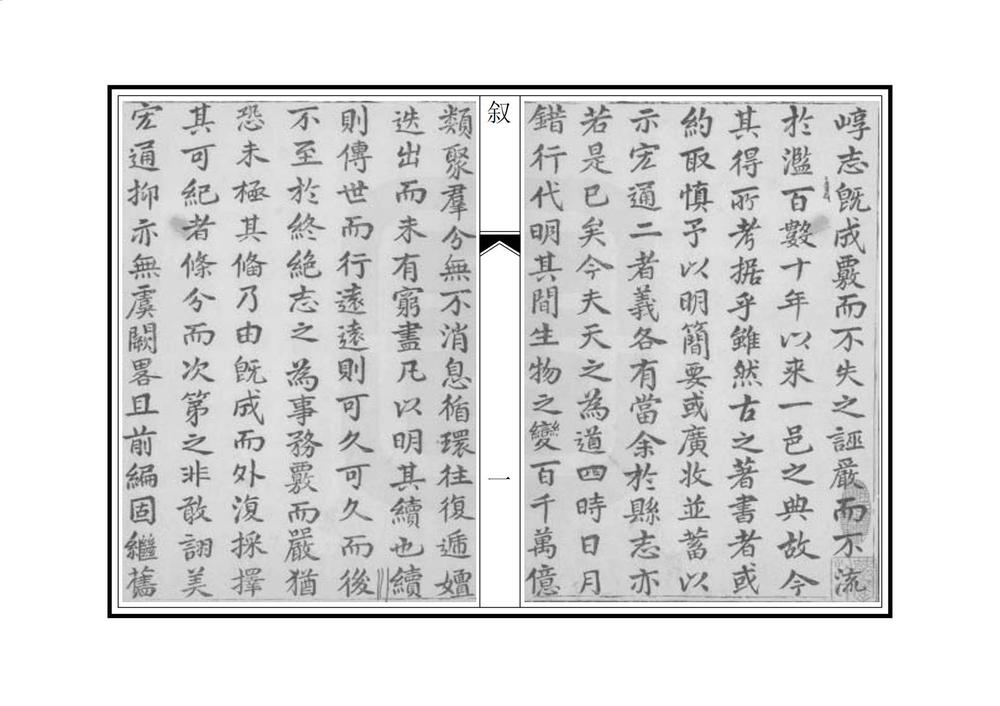 崞志既成覈而不失之誣嚴而不流
於濫百數十年以來一邑之典故今
其得所考据乎雖然古之著書者或
約取慎予以明簡要或廣收並蓄以
示宏通二者義各有當余於縣志亦
若是已矣今夫天之為道四時日月
錯行代明其間生物之變百千萬億
叙
一
類聚羣分無不消息循環往復遞嬗
迭出而未有窮盡凡以明其續也續
則傳世而行遠遠則可久可久而後
不至於終絕志之為事務覈而嚴猶
恐未極其俻乃由既成而外復採擇
其可紀者條分而次第之非敢詡美
宏通抑亦無虞闕畧且前編固繼舊